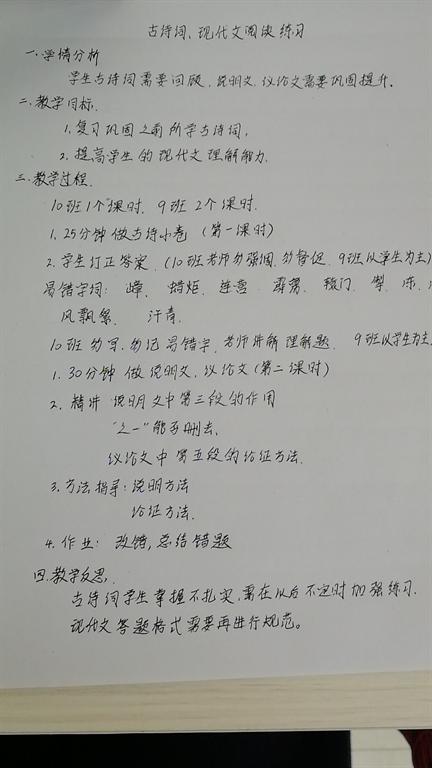 古诗词、现代文阅读练习
一.学情分析
学生古诗词需要回顾,说明文、议论文需要巩固提升。
二.教学目标.
1.复习巩固之前所学古诗词,
2.提高学生的现代文理解能力.
三.教学过程.
10班1个课时. 9班2个课时.
1.25分钟做古诗小卷(第一课时)
2.学生订正答案.(10班老师多强调,多督促.9班以学生为主)
易错字词: 嶂. 蜡炬. 连营. 霹雳. 冻.
风飘絮. 汗青.
10班多写.多记易错字,老师讲解理解题. 9班以学生为主.
1.30分钟做说明文.议论文(第二课时)
2.精讲说明文中第三段的作用
"之一"能否删去.
议论文中第五段的论证方法.
3.方法指导:说明方法
论证方法.
4.作业:改错,总结错题
四.教学反思.
古诗词学生掌握不扎实,需在以后不定时加强练习.
现代文答题格式需要再进行规范。